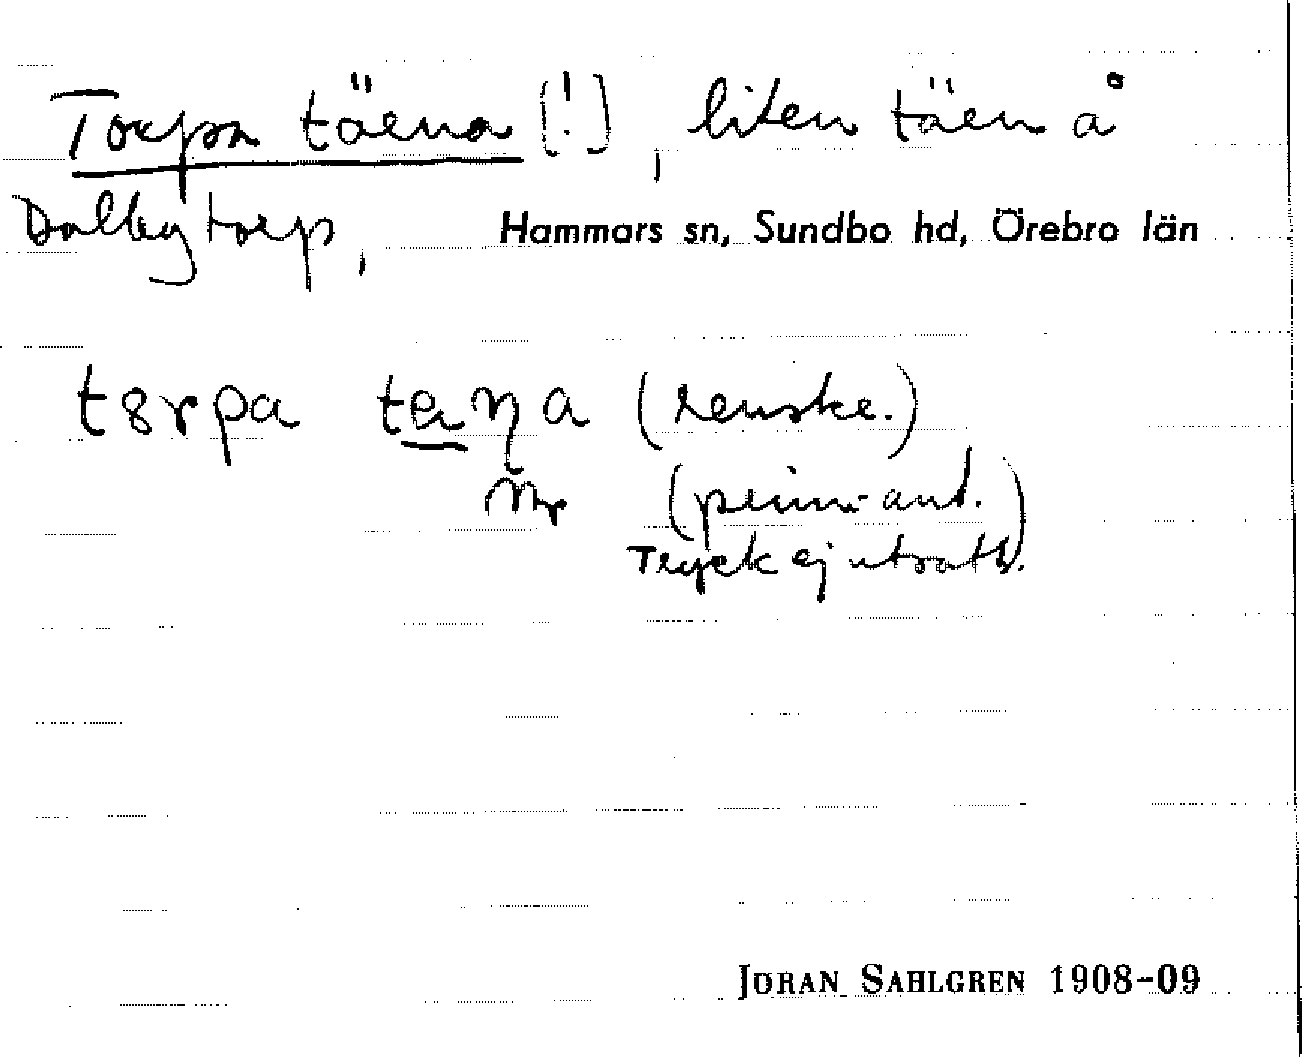 Torpa täerna [!], liten täern å
Dalby torp, Hammars sn, Sundbo hd, Örebro län
t8rpa taŋa (renskr.)
(prim-ant.
Tryck ej utsatt).
JÖRAN SAHLGREN 1908-09